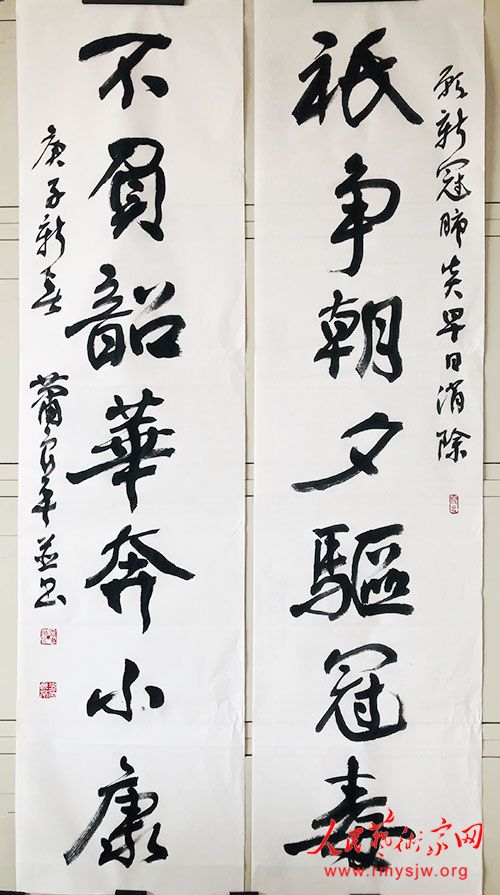 願新冠肺炎早日消除
祇争朝夕驅冠毒
不負韶華奔小康
庚子新春
蕭
人民藝術家网
www.rmysjw.org